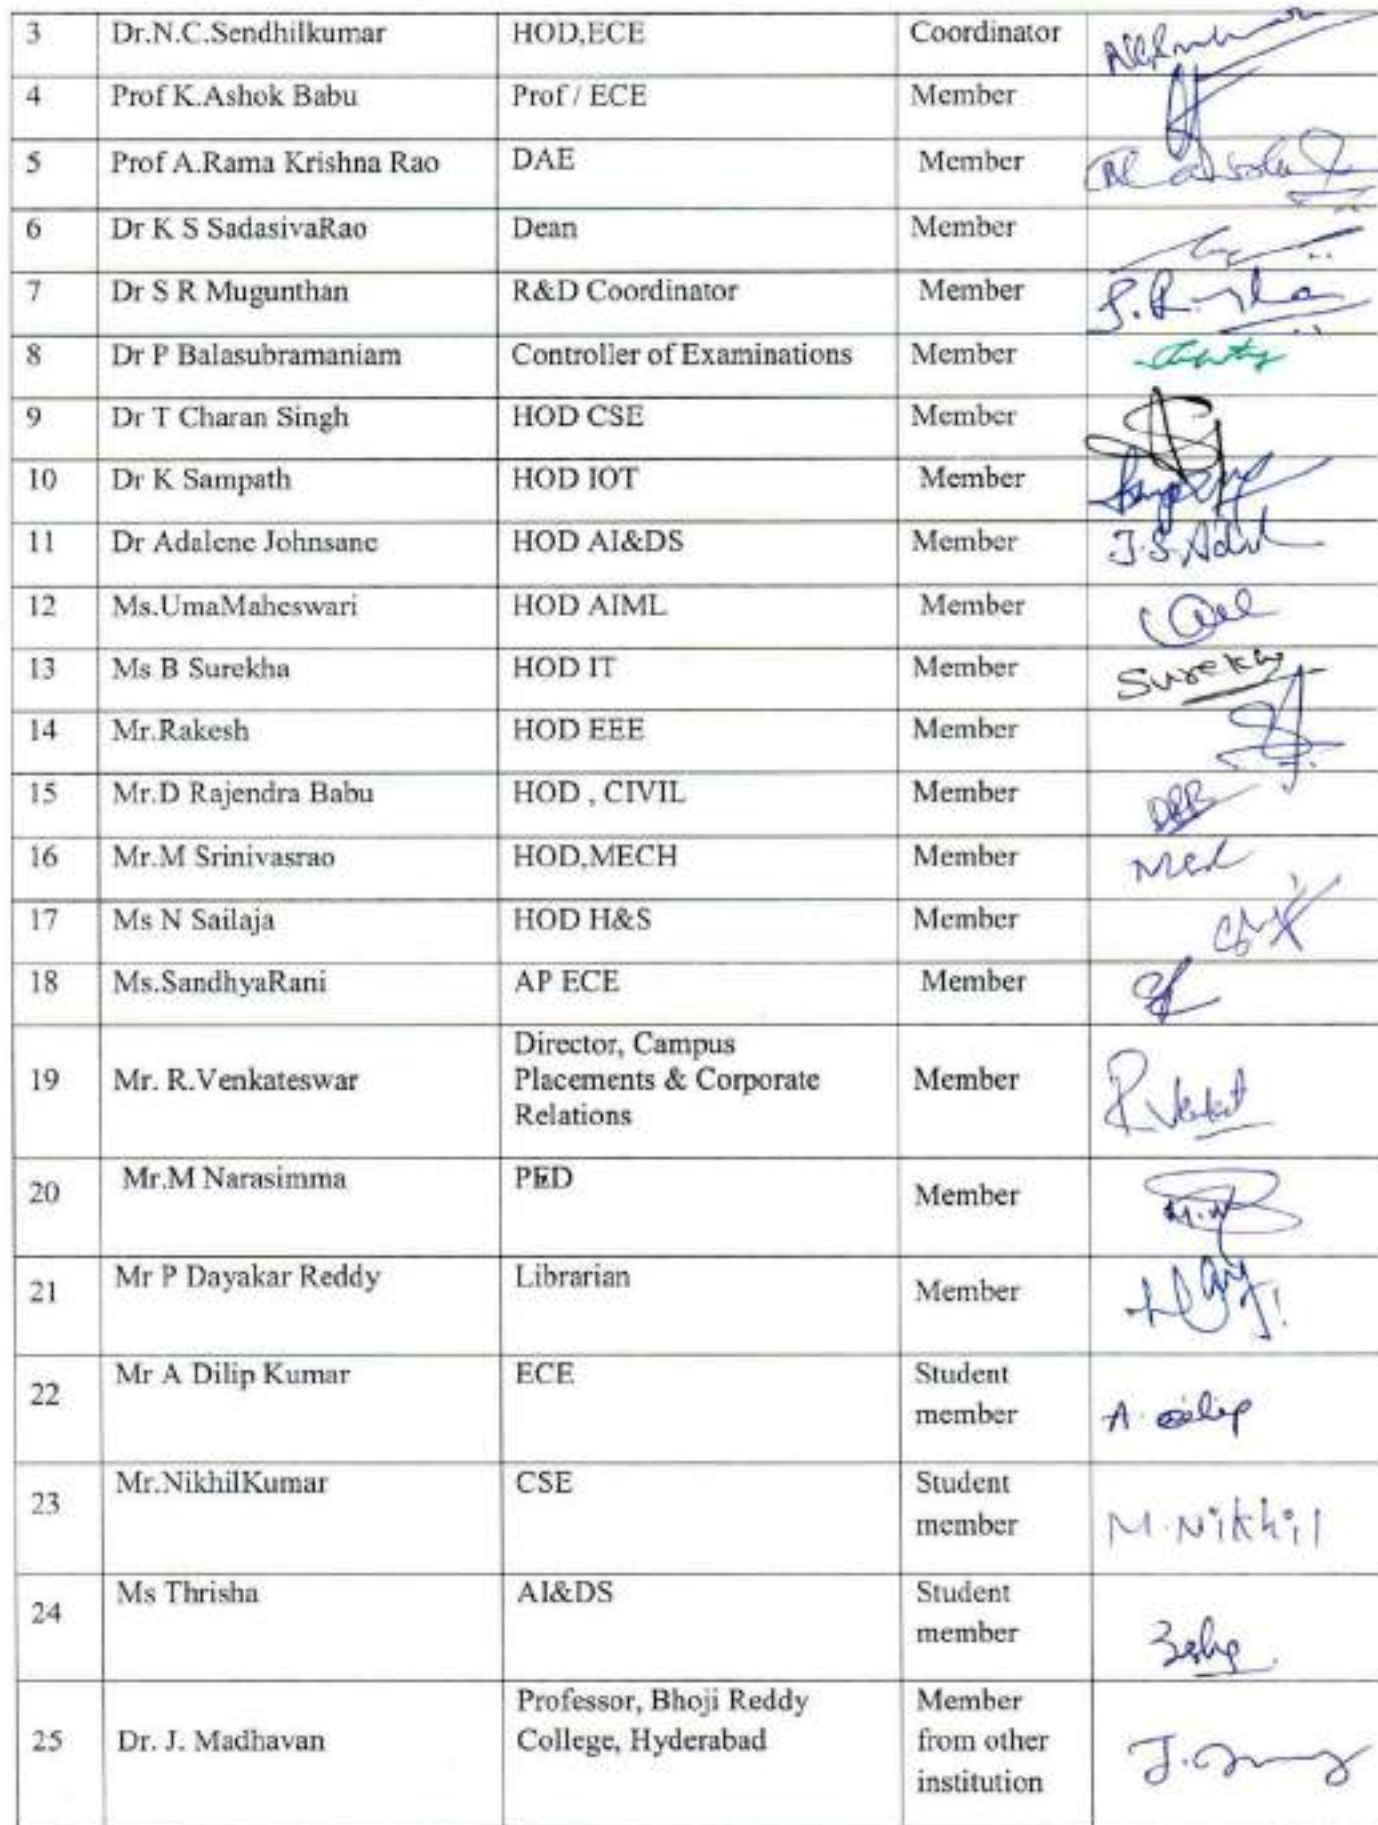 3 Dr.N.C.Sendhilkumar HOD,ECE Coordinator
4 Prof K.Ashok Babu Prof / ECE Member
5 Prof A.Rama Krishna Rao DAE Member
6 Dr K S SadasivaRao Dean Member
7 Dr S R Mugunthan R&D Coordinator Member
8 Dr P Balasubramaniam Controller of Examinations Member
9 Dr T Charan Singh HOD CSE Member
10 Dr K Sampath HOD IOT Member
11 Dr Adalene Johnsane HOD AI&DS Member
12 Ms.UmaMaheswari HOD AIML Member
13 Ms B Surekha HOD IT Member Surekha
14 Mr.Rakesh HOD EEE Member
15 Mr.D Rajendra Babu HOD , CIVIL Member DRB
16 Mr.M Srinivasrao HOD,MECH Member
17 Ms N Sailaja HOD H&S Member
18 Ms.SandhyaRani AP ECE Member
19 Mr. R.Venkateswar Director, Campus
Placements & Corporate
Relations Member R.Venkat
20 Mr.M Narasimma PED Member
21 Mr P Dayakar Reddy Librarian Member
22 Mr A Dilip Kumar ECE Student
member A. dilip
23 Mr.NikhilKumar CSE Student
member M.Nikhil
24 Ms Thrisha AI&DS Student
member
25 Dr. J. Madhavan Professor, Bhoji Reddy
College, Hyderabad Member
from other
institution